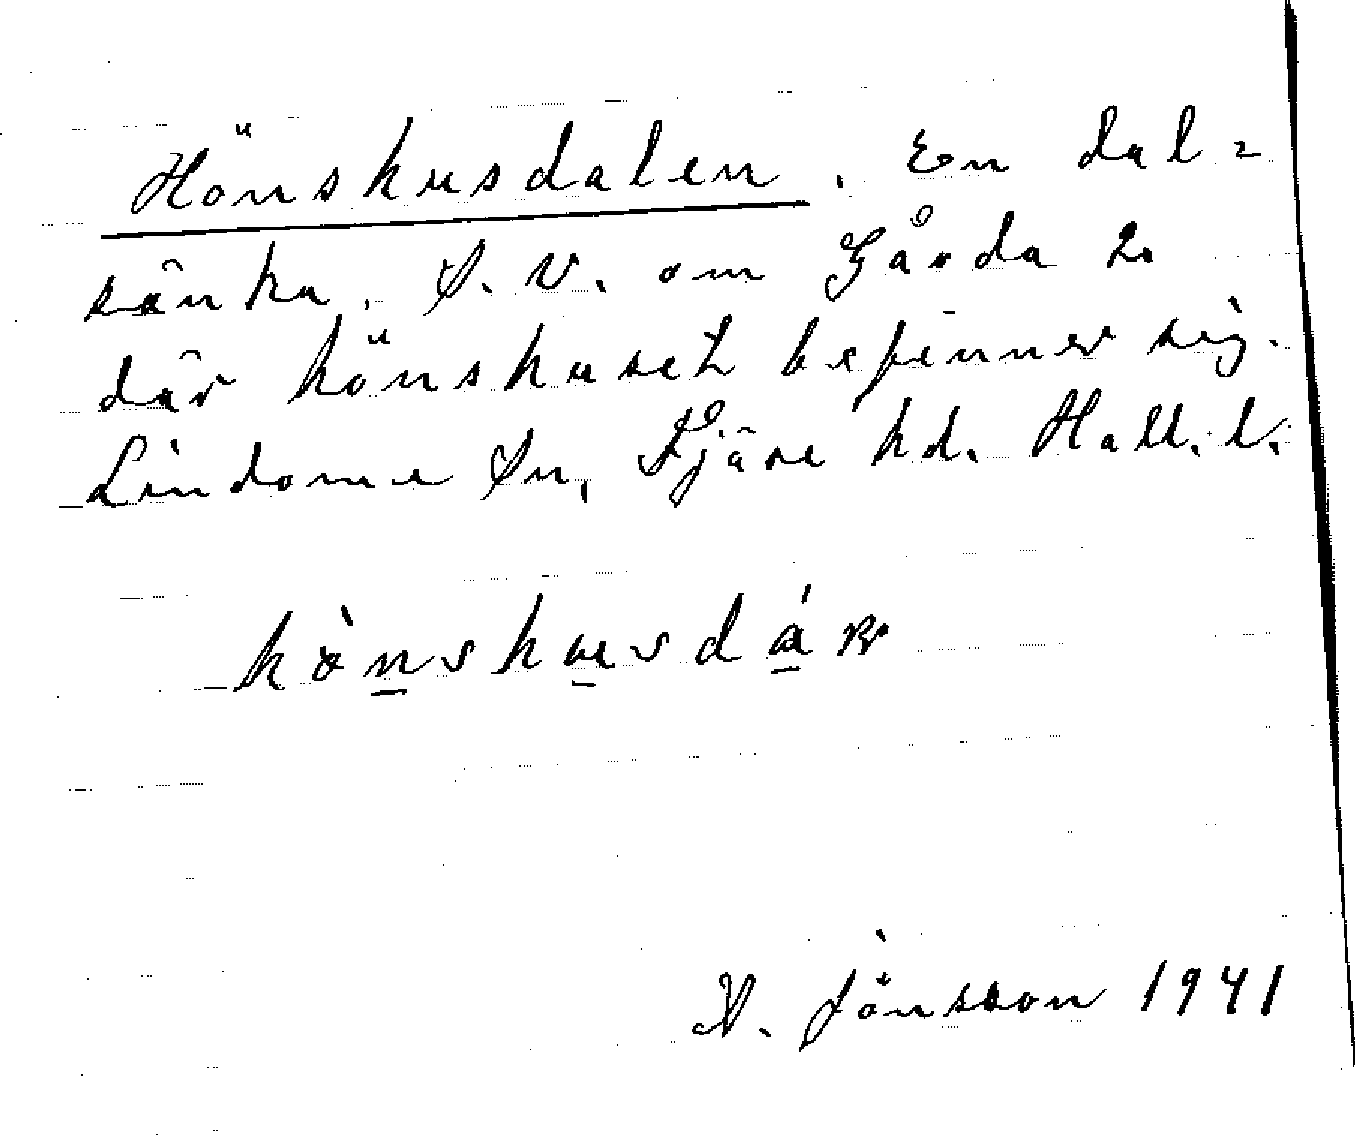 Hönshusdalen. En dal-
sänka. S. V. om Gårda 2.
där hönshuset befinner sig.
Lindome Sn. Fjäre hd. Hall. l.
Jönsson 1941